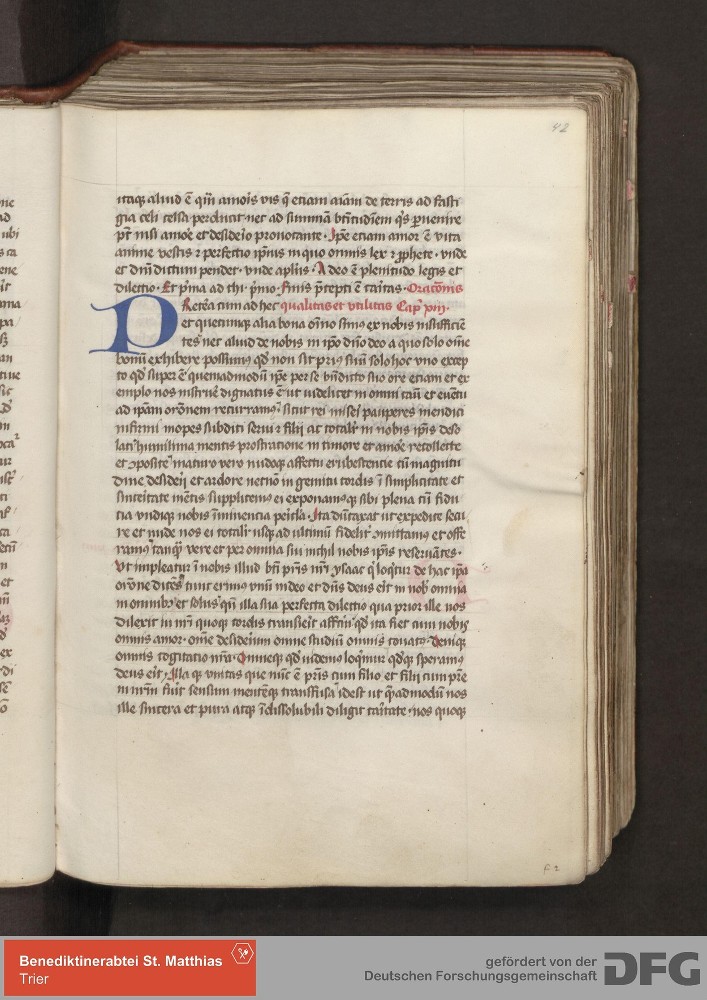 42
itaqꝫ aliud ē qm̄ amoris vis q̄ etiam aīam de terris ad fasti
gia celi celsa perducit nec ad summā btītudīem qs ꝑuenire
pt nisi amoē et desiderio prouocante. Ipse etiam amor ē vita
anime vestis ⁊ perfectio ipsius in quo omnis lex ⁊ ꝓphete. vnde
et dīm dictum pendet. vnde apl̄us. Adeo ē plenitudo legis et
dilectio. Et prima ad thi. primo. Finis p̄cepti ē caritas. Oratōnis
PReterea cum ad hec qualitas et vtilitas Cap xiii.
et quecunqꝫ alia bona om̄ino simus ex nobis insufficiē
tes nec aliud de nobis in ipō dn̄o deo a quo solo om̄e
bonū exhibere possumus qd non sit prius suū solo hoc vno excep
to qd super ē quemadmodū ipse per se bn̄dicto suo ore etiam et ex
emplo nos instruē dignatus ē ut videlicet in omni cau et euētu
ad ipam orōnem recurramus sicut rei miseri pauperes mendici
infirmi inopes subditi serui ⁊ filij ac totalr̄ in nobis ipis deso
lati humilima mentis prostracione in timore et amoē recollecte
et ꝯposite maturo vero nudoqꝫ affectu erubescentie cū magnitu
dine desiderij et ardore necnō in gemitu cordis ī simplicitate et
sinceritate mētis supplicemus ei exponamusqꝫ sibi plena cū fidu
cia vndiqꝫ nobis īminencia pericla. Ita dūtaxat ut expedite secu
re et nude nos ei totalr̄ usqꝫ ad ultimū fidelit ꝯmittamus et offe
ramus tanqꝫ vere et per omnia sui nichil nobis ipis reseruātes.
Vt impleatur ī nobis illud bti p̄ris nr̄i ysaac qui loqtur de hac ipa
orōne dicēs tunc erimus vnū in deo et dn̄s deus erit in nob omnia
in omnibꝫ et solus qn̄ illa sua perfecta dilectio qua prior ille nos
dilexit in nr̄m quoqꝫ cordis transierit affm̄ qd ita fiet cum nobis
omnis amor. om̄e desiderium omne studiū omnis conatus. Deniqꝫ
omnis cogitatio nr̄a. Omneqꝫ qd videmus loqmur qdqꝫ speramus
deus erit. Illa qꝫ vnitas que nūc ē pris cum filio et filij cum pr̄e
in nr̄m fuit sensum mentēqꝫ transfusa idest ut q̄admodū nos
ille sincera et pura atqꝫ īdissolubili diligit caritate. nos quoqꝫ
f 2
Benediktinerabtei St. Matthias
Trier
gefördert von der
Deutschen Forschungsgemeinschaft
DFG